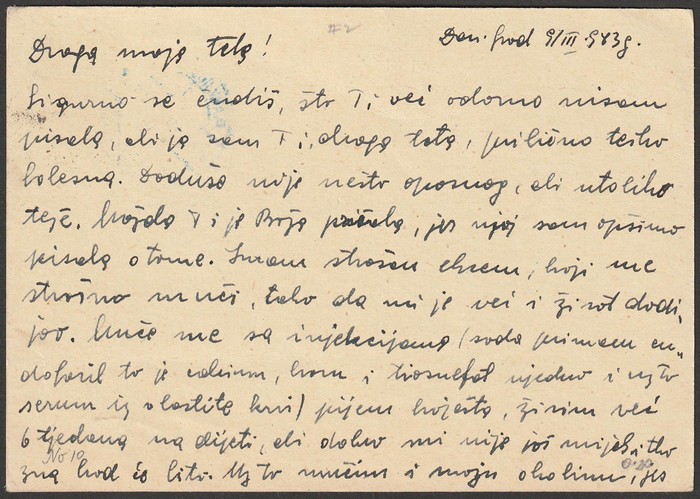 Draga moja teta!
Sigurno se čudiš, što Ti već odavno nisam
pisala, ali ja sam Ti, draga teta, prilično teško
bolesna. Doduše nije nešto opasnog, ali utoliko
teže. Možda Ti je Boža pričala, jer njoj sam opširno
pisala o tome. Imam strašan ekcem, koji me
strašno muči, tako da mi je već i život dodi-
jao. Muče me sa injekcijama (sada primam
to je calcium, brom i tiosulfat ujedno i uz to
serum iz vlastite krvi) pijem koješta, živim već
6 tjedana na dijeti, ali dakle mi nije još mijek, i tko
zna kad će biti. Uz to mučim i moju okolinu, jer
No 10